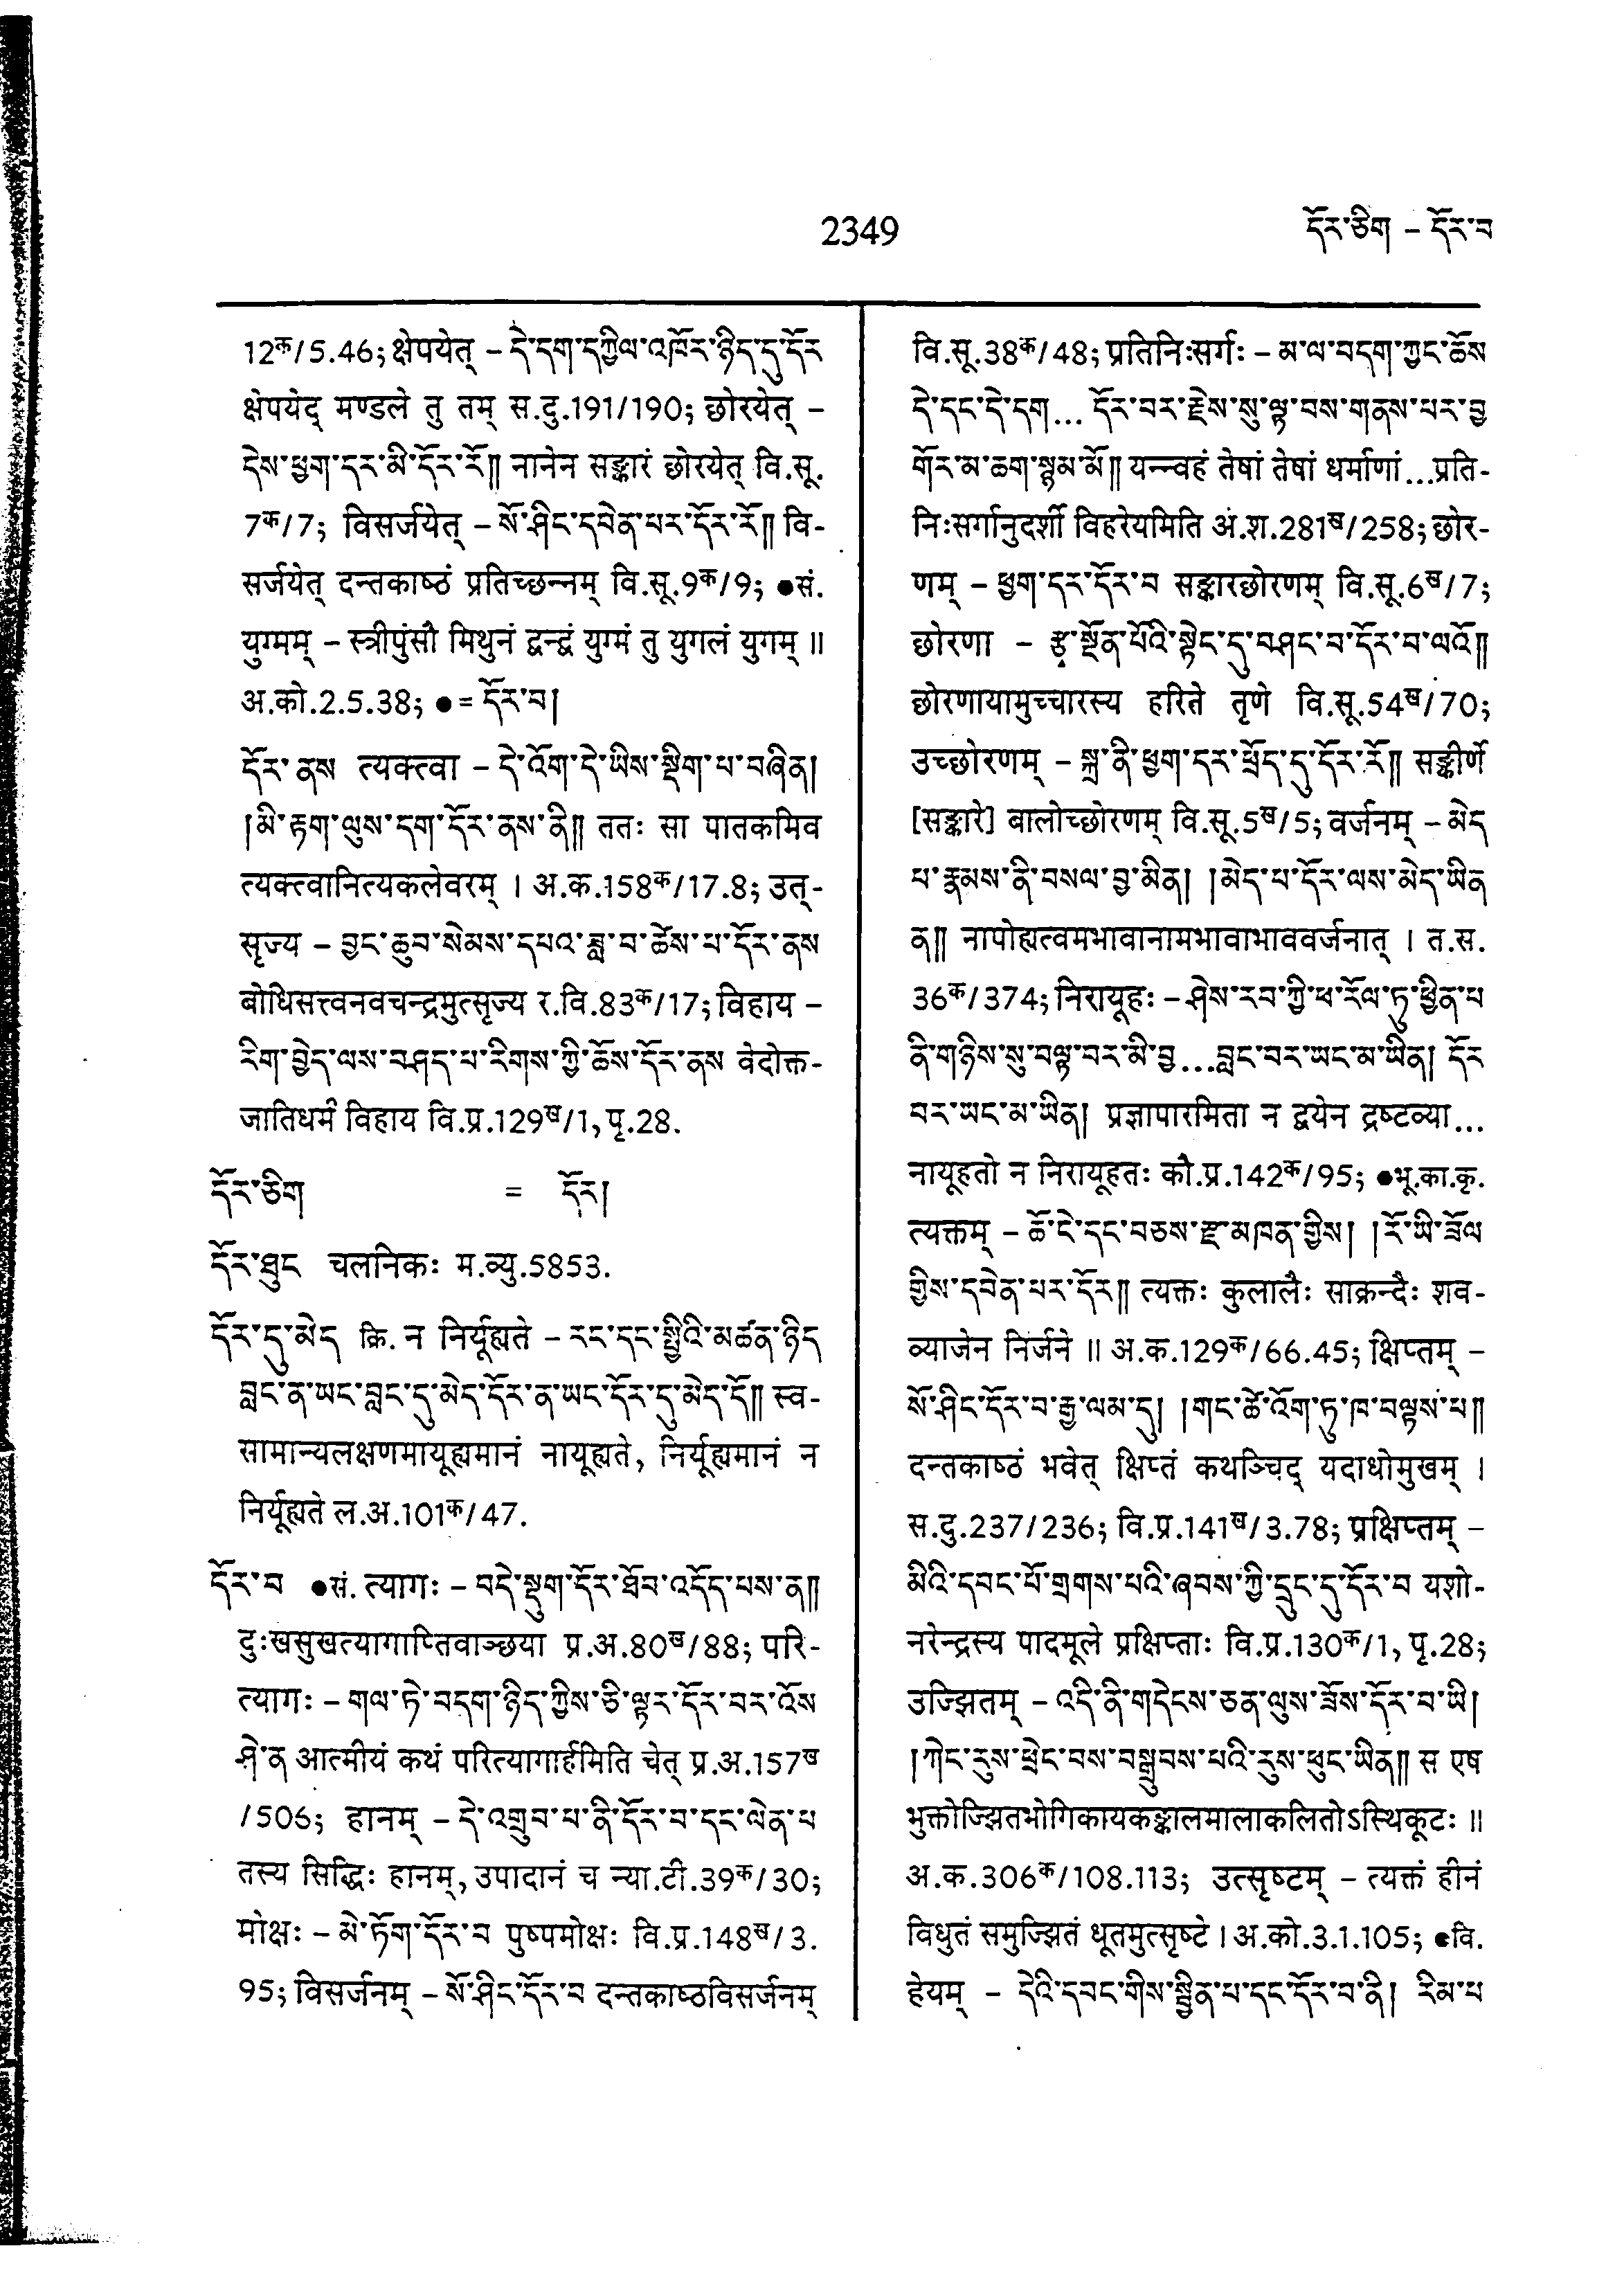 2349
དོར་ཅིག – དོར་བ
12क/5.46; क्षेपयेत् – དེ་དག་དཀྱིལ་འཁོར་ཉིད་དུ་དོར
क्षेपयेद् मण्डले तु तम् स.दु.191/190; छोरयेत् –
དེས་ཕྱག་དར་མི་དོར་རོ༎ नानेन सङ्कारं छोरयेत् वि.सू.
7क/7; विसर्जयेत् – སོ་ཤིང་དབེན་པར་དོར་རོ༎ वि-
सर्जयेत् दन्तकाष्ठं प्रतिच्छन्नम् वि.सू.9क/9; ●सं.
युग्मम् – स्त्रीपुंसौ मिथुनं द्वन्द्वं युग्मं तु युगलं युगम् ॥
अ.को.2.5.38; ●= དོར་བ།
དོར་ནས त्यक्त्वा – དེ་འོག་དེ་ཡིས་སྡིག་པ་བཞིན།
།མི་རྟག་ལུས་དག་དོར་ནས་ནི༎ ततः सा पातकमिव
त्यक्त्वानित्यकलेवरम् । अ.क.158क/17.8; उत्-
सृज्य – བྱང་ཆུབ་སེམས་དཔའ་ཟླ་བ་ཚེས་པ་དོར་ནས
बोधिसत्त्वनवचन्द्रमुत्सृज्य र.वि.83क/17; विहाय –
རིག་བྱེད་ལས་བཤད་པ་རིགས་ཀྱི་ཆོས་དོར་ནས वेदोक्त-
जातिधर्मं विहाय वि.प्र.129ख/1, पृ.28.
དོར་ཅིག = དོར།
དོར་ཐུང चलनिकः म.व्यु.5853.
དོར་དུ་མེད क्रि. न निर्यूह्यते – རང་དང་སྤྱིའི་མཚན་ཉིད
བླང་ན་ཡང་བླང་དུ་མེད་དོར་ན་ཡང་དོར་དུ་མེད་དོ༎ स्व-
सामान्यलक्षणमायूह्यमानं नायूह्यते, निर्यूह्यमानं न
निर्यूह्यते ल.अ.101क/47.
དོར་བ ●सं. त्यागः – བདེ་སྡུག་དོར་ཐོབ་འདོད་པས་ན༎
दुःखसुखत्यागाप्तिवाञ्छया प्र.अ.80ख/88; परि-
त्यागः – གལ་ཏེ་བདག་ཉིད་ཀྱིས་ཅི་ལྟར་དོར་བར་འོས
ཤེ་ན आत्मीयं कथं परित्यागार्हमिति चेत् प्र.अ.157ख
/506; हानम् – དེ་འགྲུབ་པ་ནི་དོར་བ་དང་ལེན་པ
तस्य सिद्धिः हानम्, उपादानं च न्या.टी.39क/30;
मोक्षः – མེ་ཏོག་དོར་བ पुष्पमोक्षः वि.प्र.148ख/3.
95; विसर्जनम् – སོ་ཤིང་དོར་བ दन्तकाष्ठविसर्जनम्
वि.सू.38क/48; प्रतिनिःसर्गः – མ་ལ་བདག་ཀྱང་ཆོས
དེ་དང་དེ་དག... དོར་བར་རྗེས་སུ་ལྟ་བས་གནས་པར་བྱ
གོར་མ་ཆག་སྙམ་མོ༎ यन्न्वहं तेषां तेषां धर्माणां...प्रति-
निःसर्गानुदर्शी विहरेयमिति अ.श.281ख/258; छोर-
णम् – ཕྱག་དར་དོར་བ सङ्कारछोरणम् वि.सू.6ख/7;
छोरणा – རྩྭ་སྔོན་པོའི་སྟེང་དུ་བཤང་བ་དོར་བ་ལའོ༎
छोरणायामुच्चारस्य हरिते तृणे वि.सू.54ख/70;
उच्छोरणम् – སྐྲ་ནི་ཕྱག་དར་ཕྲོད་དུ་དོར་རོ༎ सङ्कीर्णे
[सङ्कारे] बालोच्छोरणम् वि.सू.5ख/5; वर्जनम् – མེད
པ་རྣམས་ནི་བསལ་བྱ་མིན། །མེད་པ་དོར་ལས་མེད་ཡིན
ན༎ नापोह्यत्वमभावानामभावाभाववर्जनात् । त.स.
36क/374; निरायूहः – ཤེས་རབ་ཀྱི་ཕ་རོལ་ཏུ་ཕྱིན་པ
ནི་གཉིས་སུ་བལྟ་བར་མི་བྱ...བླང་བར་ཡང་མ་ཡིན། དོར
བར་ཡང་མ་ཡིན། प्रज्ञापारमिता न द्वयेन द्रष्टव्या...
नायूहतो न निरायूहतः कौ.प्र.142क/95; ●भू.का.कृ.
त्यक्तम् – ཆོ་ངེ་དང་བཅས་རྫ་མཁན་གྱིས། །རོ་ཡི་ཟོལ
གྱིས་དབེན་པར་དོར༎ त्यक्तः कुलालैः साक्रन्दैः शव-
व्याजेन निर्जने ॥ अ.क.129क/66.45; क्षिप्तम् –
སོ་ཤིང་དོར་བ་རྒྱ་ལམ་དུ། །གང་ཚེ་འོག་ཏུ་ཁ་བལྟས་པ༎
दन्तकाष्ठं भवेत् क्षिप्तं कथञ्चिद् यदाधोमुखम् ।
स.दु.237/236; वि.प्र.141ख/3.78; प्रक्षिप्तम् –
མིའི་དབང་པོ་གྲགས་པའི་ཞབས་ཀྱི་དྲུང་དུ་དོར་བ यशो-
नरेन्द्रस्य पादमूले प्रक्षिप्ताः वि.प्र.130क/1, पृ.28;
उज्झितम् – འདི་ནི་གདེངས་ཅན་ལུས་ཟོས་དོར་བ་ཡི།
།ཀེང་རུས་ཕྲེང་བས་བསྒྲུབས་པའི་རུས་ཕུང་ཡིན༎ स एष
भुक्तोज्झितभोगिकायकङ्कालमालाकलितोऽस्थिकूटः ॥
अ.क.306क/108.113; उत्सृष्टम् – त्यक्तं हीनं
विधुतं समुज्झितं धूतमुत्सृष्टे । अ.को.3.1.105; ●वि.
हेयम् – དེའི་དབང་གིས་སྦྱིན་པ་དང་དོར་བ་ནི། རིམ་པ